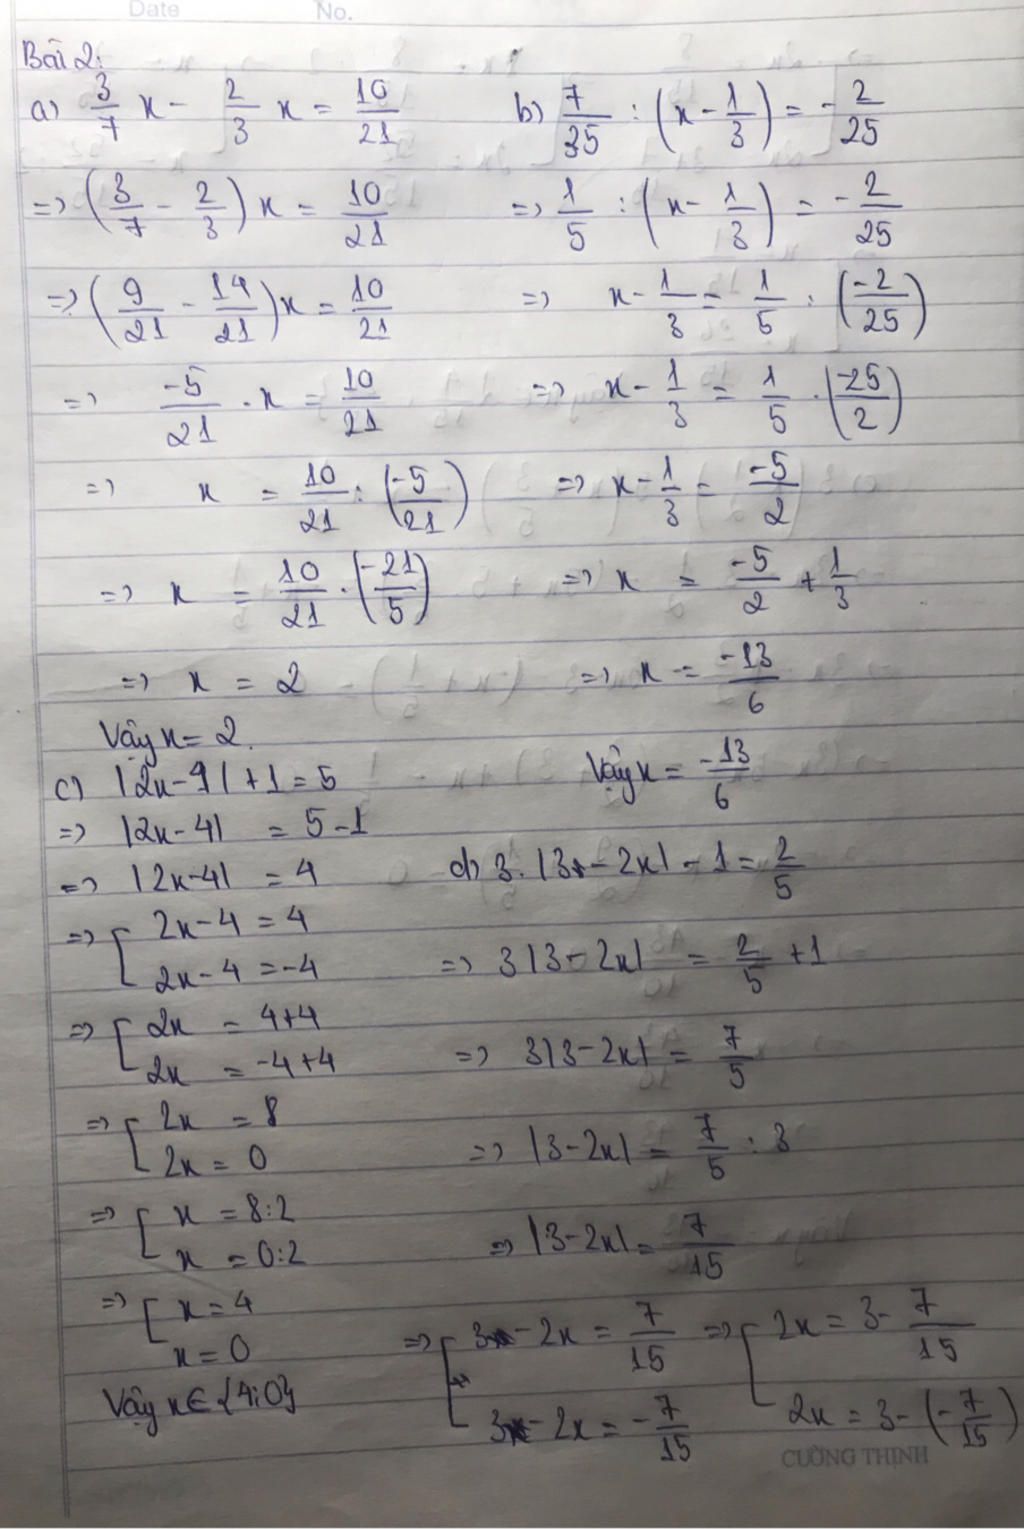 Date No.
Bài 2:
a) 3/7 x - 2/3 x = 10/21
=> (3/7 - 2/3) x = 10/21
=> (9/21 - 14/21) x = 10/21
=> -5/21 . x = 10/21
=> x = 10/21 : (-5/21)
=> x = 10/21 . (-21/5)
=> x = 2
Vậy x = 2.
b) 7/35 : (x - 1/3) = - 2/25
=> 1/5 : (x - 1/3) = - 2/25
=> x - 1/3 = 1/5 : (-2/25)
=> x - 1/3 = 1/5 . (-25/2)
=> x - 1/3 = -5/2
=> x = -5/2 + 1/3
=> x = -13/6
Vậy x = -13/6
c) |2x - 4| + 1 = 5
=> |2x - 4| = 5 - 1
=> |2x - 4| = 4
=> [ 2x - 4 = 4
2x - 4 = -4
=> [ 2x = 4 + 4
2x = -4 + 4
=> [ 2x = 8
2x = 0
=> [ x = 8:2
x = 0:2
=> [ x = 4
x = 0
Vậy x ∈ {4;0}
d) 3. |3 - 2x| - 1 = 2/5
=> 3|3 - 2x| = 2/5 + 1
=> 3|3 - 2x| = 7/5
=> |3 - 2x| = 7/5 : 3
=> |3 - 2x| = 7/15
=> [ 3 - 2x = 7/15 => [ 2x = 3 - 7/15
3 - 2x = - 7/15 2x = 3 - (- 7/15)
CƯỜNG THỊNH